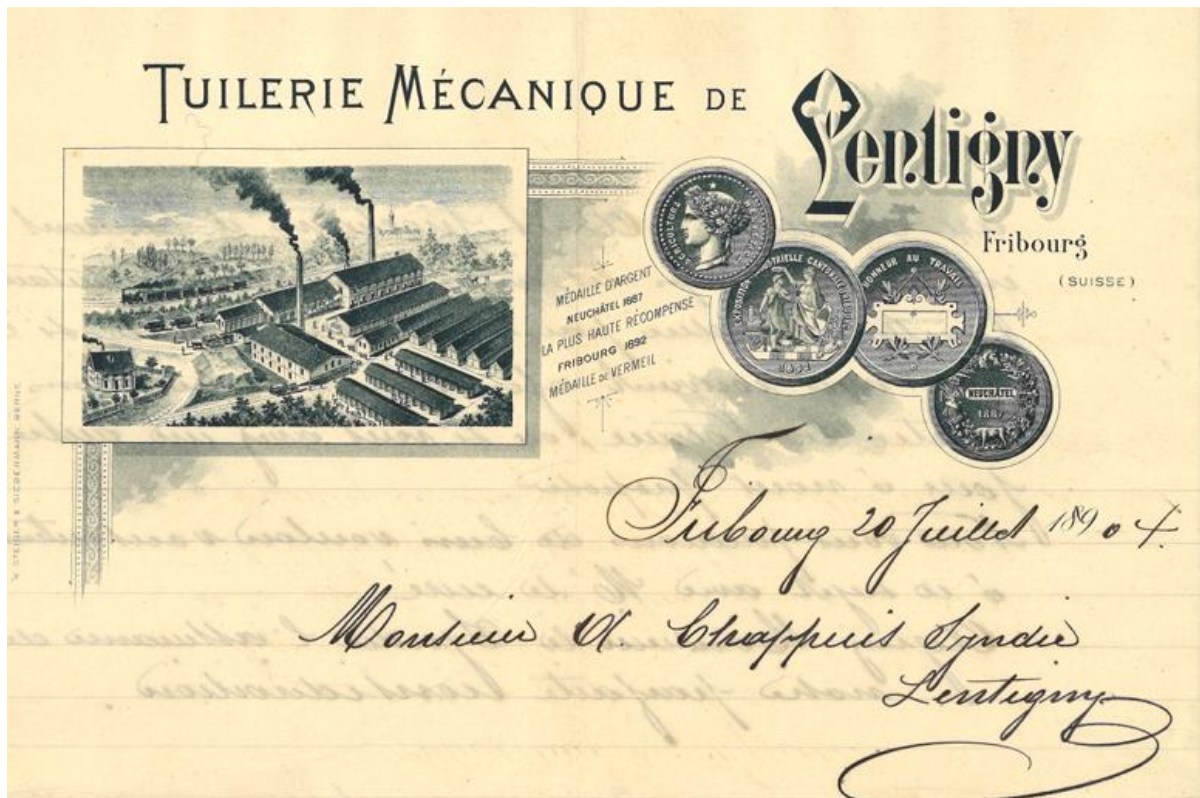 TUILERIE MÉCANIQUE DE Lentigny
Fribourg
(SUISSE)
MÉDAILLE D'ARGENT
NEUCHÂTEL 1887
LA PLUS HAUTE RÉCOMPENSE
FRIBOURG 1892
MÉDAILLE DE VERMEIL
AGRICULTURE
EXPOSITION INDUSTRIELLE CANTONALE FRIBOURG
1892
HONNEUR AU TRAVAIL
NEUCHÂTEL
1887
Fribourg 20 Juillet 1890 4.
Monsieur A. Chappuis Syndic
Lentigny